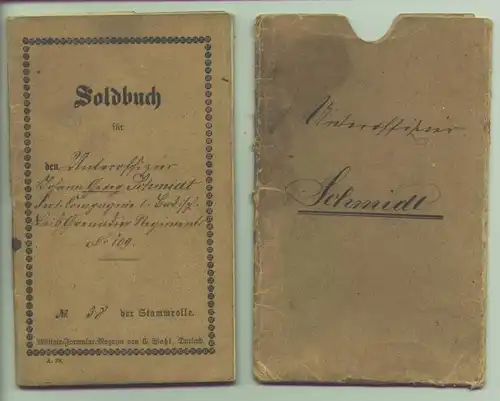 Soldbuch
für
den Unteroffizier
Johann Georg Schmidt
Compagnie 1. Bad.
Leib Grenadier Regiment
No 109.
№ 38 der Stammrolle.
Militair-Formular-Magazin von
Unteroffizier
Schmidt